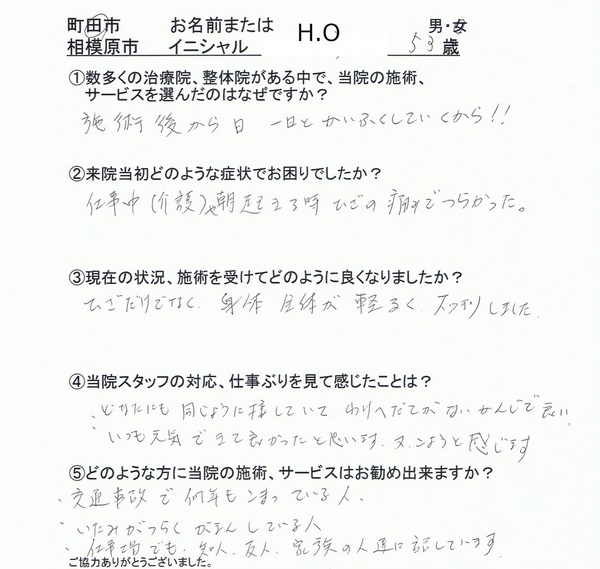 町田市 お名前または H.O 男・女
相模原市 イニシャル 53歳
①数多くの治療院、整体院がある中で、当院の施術、
サービスを選んだのはなぜですか?
施術後から日一日とかいふくしていくから!!
②来院当初どのような症状でお困りでしたか?
仕事中(介護)や朝起きる時ひざの痛みでつらかった。
③現在の状況、施術を受けてどのように良くなりましたか?
ひざだけでなく、身体全体が軽るくスッキリしました。
④当院スタッフの対応、仕事ぶりを見て感じたことは?
・どなたにも同じように接していてわけへだてがないかんじで良い
・いつも元気で来て良かったと思います。又、こようと感じます
⑤どのような方に当院の施術、サービスはお勧め出来ますか?
・交通事故で何年もこまっている人、
・いたみがつらくがまんしている人
・仕事場でも、知人、友人、家族の人達に話しています。
ご協力ありがとうございました。